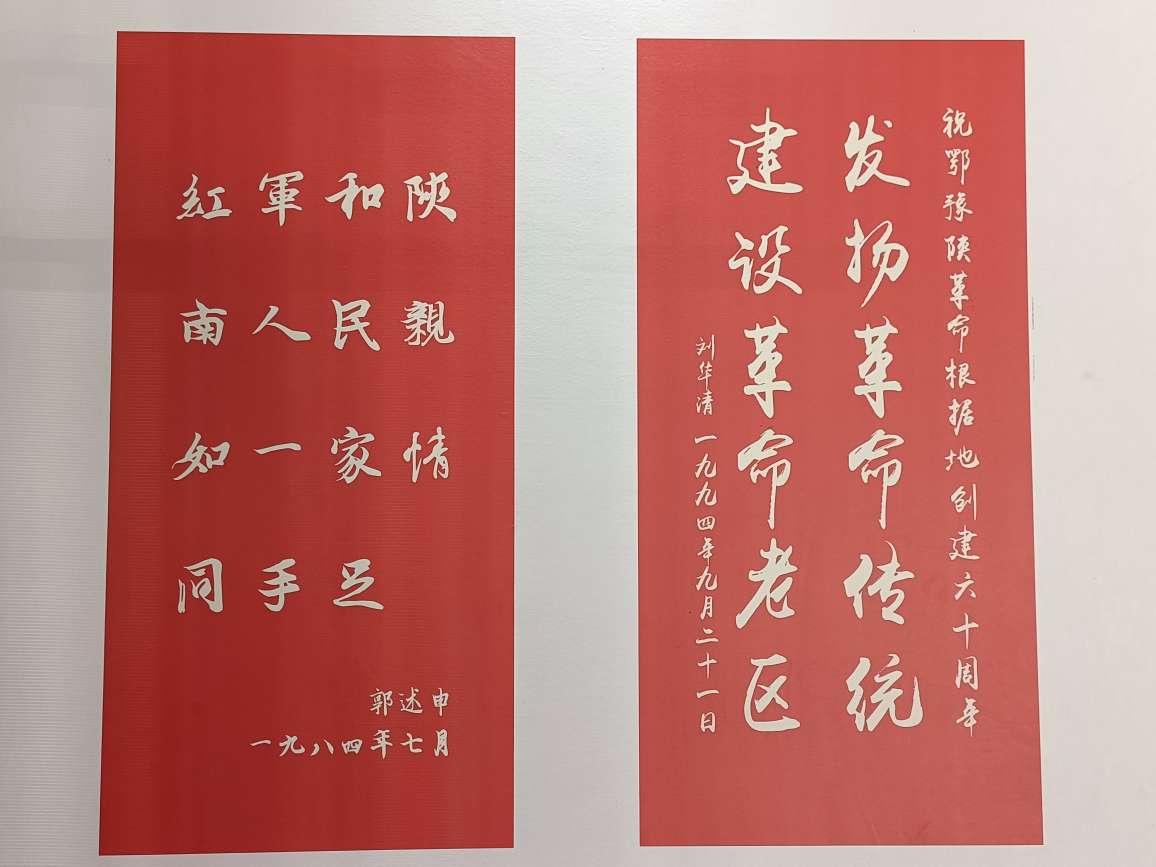 紅軍和陝
南人民親
如一家情
同手足
郭述申
一九八四年七月
祝鄂豫陕革命根据地创建六十周年
发扬革命传统
建设革命老区
刘华清 一九九四年九月二十一日